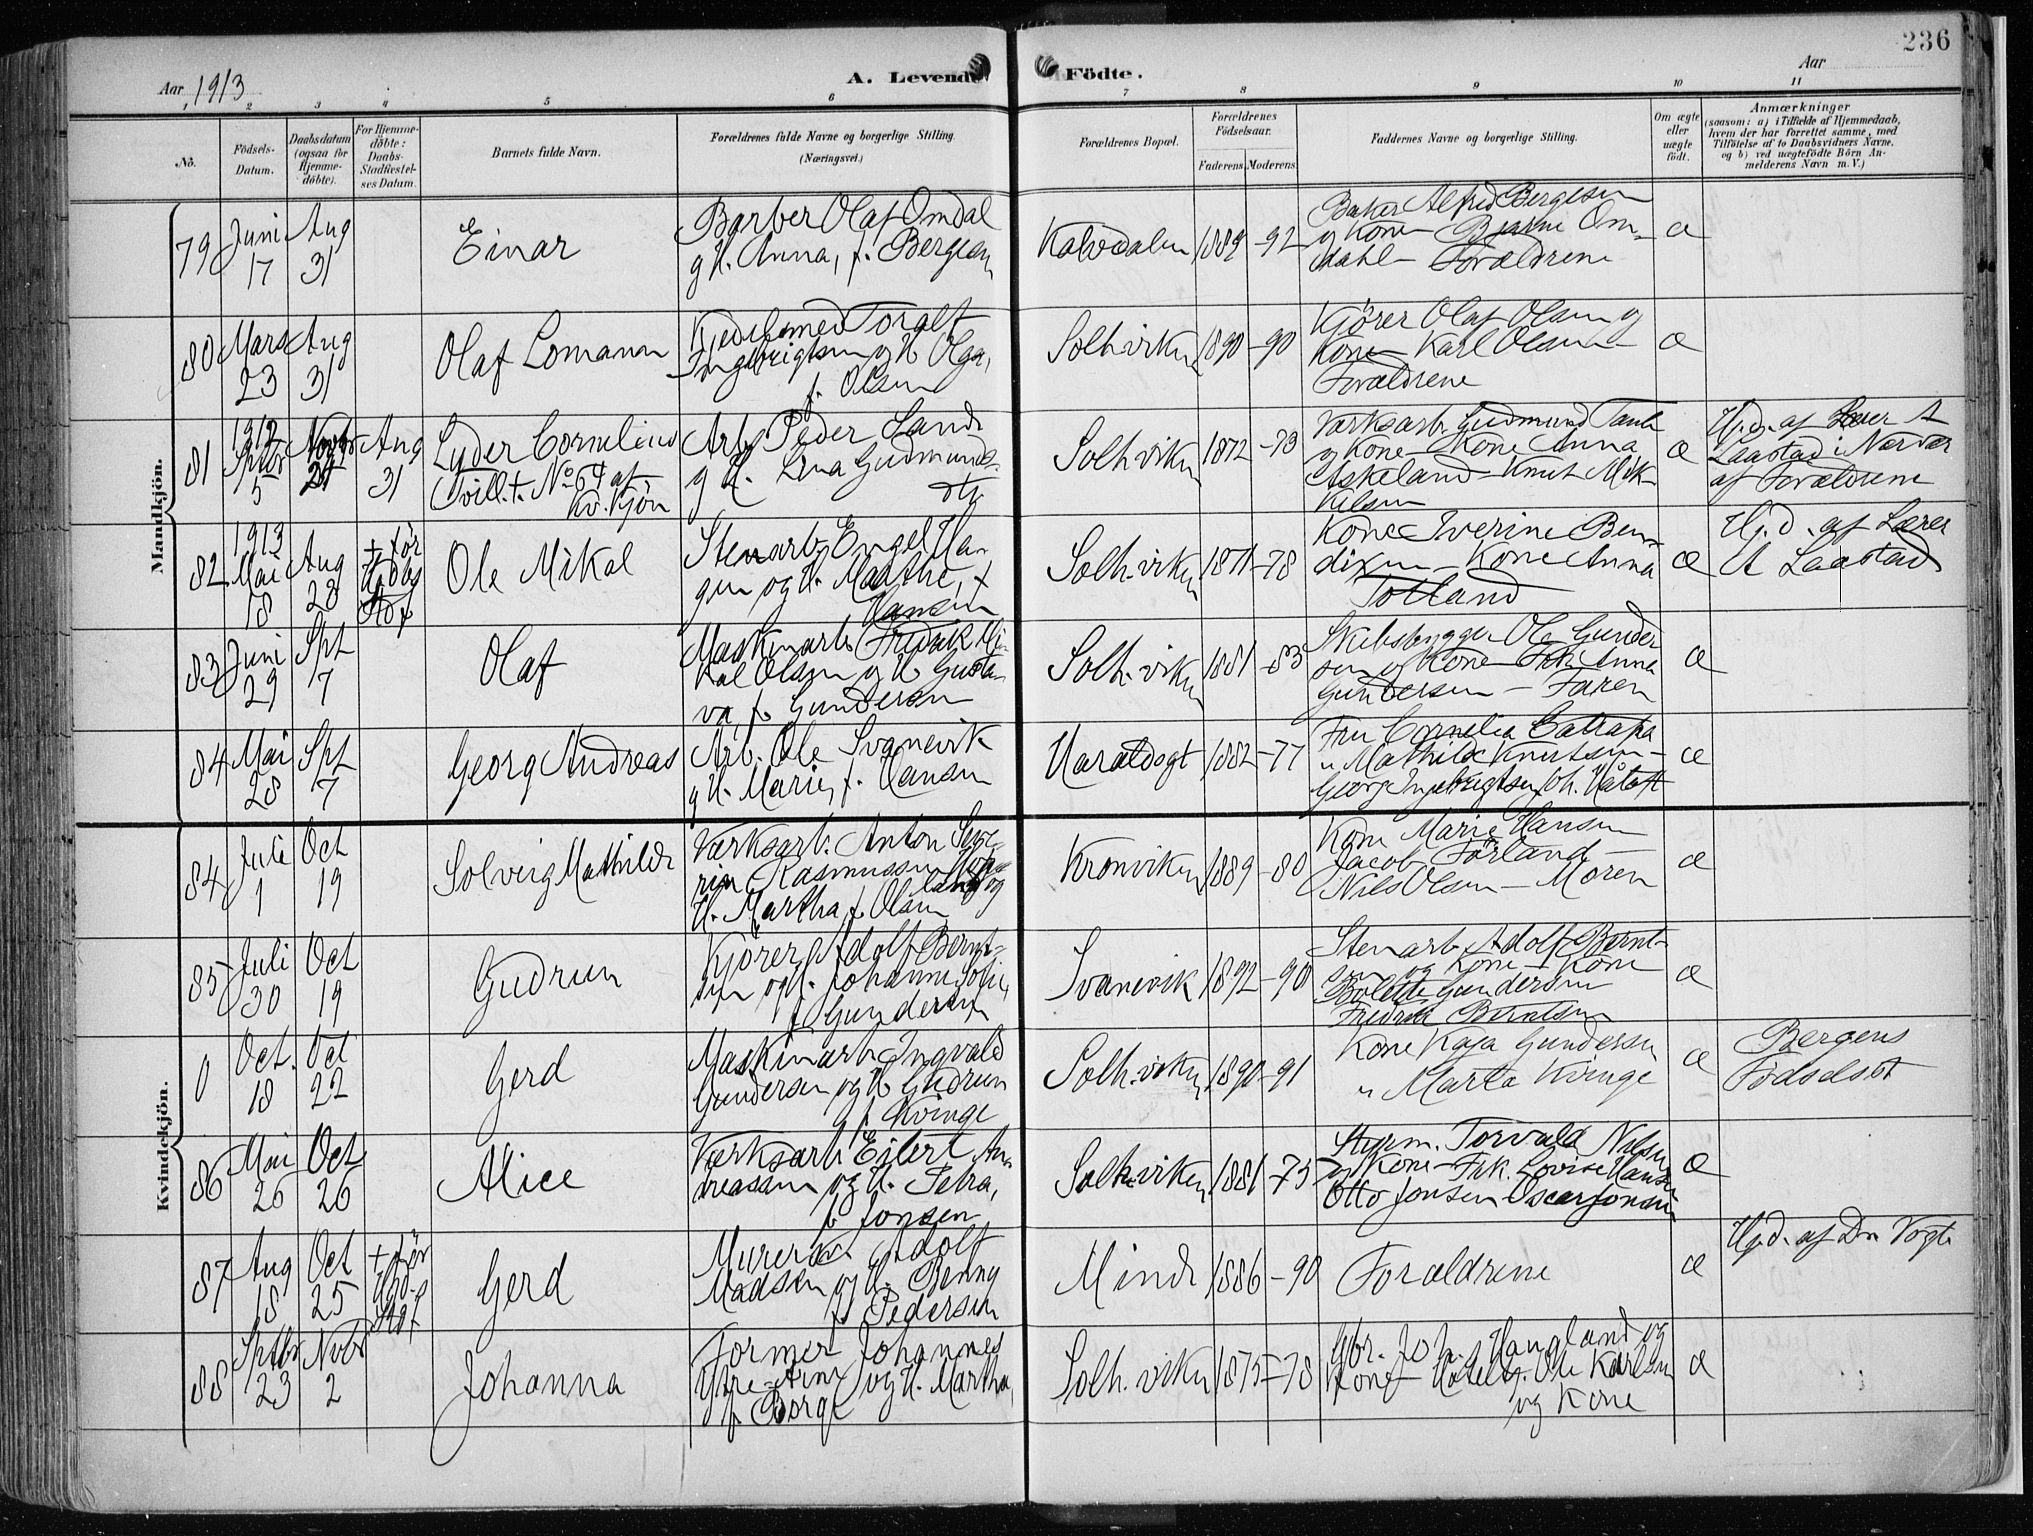 236
Aar 1913
A. Levende Födte.
Aar
1 2 3 4 5 6 7 8 9 10 11
No.
Födsels-
Datum.
Daabsdatum
(ogsaa for
Hjemme-
döbte).
For Hjemme-
döbte:
Daabs-
Stadfæstel-
ses Datum.
Barnets fulde Navn.
Forældrenes fulde Navne og borgerlige Stilling.
(Næringsvei.)
Forældrenes Bopæl.
Forældrenes
Födselsaar.
Faderens Moderens
Faddernes Navne og borgerlige Stilling.
Om ægte
eller
uægte
födt.
Anmærkninger
(saasom: a) i Tilfælde af Hjemmedaab,
hvem der har forrettet samme, med
Tilföielse af to Daabsvidners Navne,
og b) ved uægtefödte Börn An-
melderens Navn m. V.)
Mandkjön.
79
Juni
17
Aug
31
Einar
Barber Olaf Omdal
og H. Anna, f. Bergesen
Kalvedalen
1889 -92
Baker Alfred Bergesen
og Kone Bjarne Om-
dahl - Forældrene
æ
80
Mars
23
Aug
31
Olaf Lomann
Kjedelsmed Toralf
Ingebrigtsen og H. Olga,
f. Olsen
Solh.viken
1890 -90
Kjörer Olaf Olsen og
Kone - Karl Olsen -
Forældrene
æ
81
1912
Sptbr
5
Novbr
Aug
31
Lyder Cornelius
Tvill. t. No 64 af
Kv. Kjön
Arb. Peder Sande
og H. Lina Gudmunds-
dtr
Solh.viken
1872 -73
Værksarb. Gudmund
og Kone - Kone Anna
Askeland - Knut Mik-
kelsen
æ
Hj.d. af Lærer A
Laastad i Nærvær
af Forældrene
82
1913
Mai
18
Aug
28
+ för
Ole Mikal
Stenarb. Engel Ha-
gen og H. Marthe, f.
Hansen
Solh.viken
1871 -78
Kone Iverine Ben-
dixen - Kone Anna
Totland
æ
Hj.d. af Lærer
A Laastad
83
Juni
29
Spt
7
Olaf
Maskinarb. Fredrik Mi-
kal Olsen og H. Gusta-
va, f. Gundersen
Solh.viken
1881 -83
Skibsbygger Ole Gunder
sen og Kone - Frk Anna
Gundersen - Faren
æ
84
Mai
28
Spt
7
Georg Andreas
Arb. Ole Svanevik
og H. Marie, f. Hansen
1882 -77
Fru Cornelia
" Mathilde Knutsen -
Georg Ingebrigtsen Joh.
æ
Kvindekjön.
84
Juli
1
Oct
19
Solveig Mathilde
Værksarb. Anton Seve-
rin Rasmussen
og
H. Martha f. Olsen
Kronviken
1889 -80
Kone Marie Hansen
Jacob Förland -
Nils Olsen - Moren
æ
85
Juli
30
Oct
19
Gudrun
Kjörer Adolf Bernt-
sen og H. Johanne Sofie,
f. Gundersen
Svanevik
1892 -90
Stenarb. Adolf Bernt-
sen og Kone - Kone
Bolette Gundersen
Fredrik Berntsen
æ
0
Oct.
18
Oct
22
Gerd
Maskinarb. Ingvald
Gundersen og H. Gudrun
f. Kvinge
Solh.viken
1890 -91
Kone Kaja Gundersen
" Marta Kvinge
æ
Bergens
Födselsst
86
Mai
26
Oct
26
Alice
Værksarb. Eilert An-
dreassen og H. Petra,
f. Jonsen
Solh.viken
1881 -75
Styrm. Torvald Nilsen
og Kone - Frk. Lovise Hansen
Otto Jonsen Oscar Jonsen
æ
87
Aug
18
Oct
25
+ för
Gerd
Murer Adolf
Madsen og H. Benny
f. Pedersen
Minde
1886 -90
Forældrene
æ
Hj.d. af Dr. Vogt
88
Sptbr
23
Novbr
2
Johanna
Former Johannes
Ytre-Arne og H. Martha,
f. Borge
Solh.viken
1875 -78
Gbr. Joh. Haugland og
Kone - Ole Karlsen
og Kone
æ